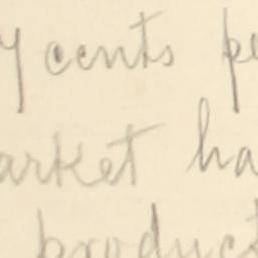 y cents pe
arket ha
product